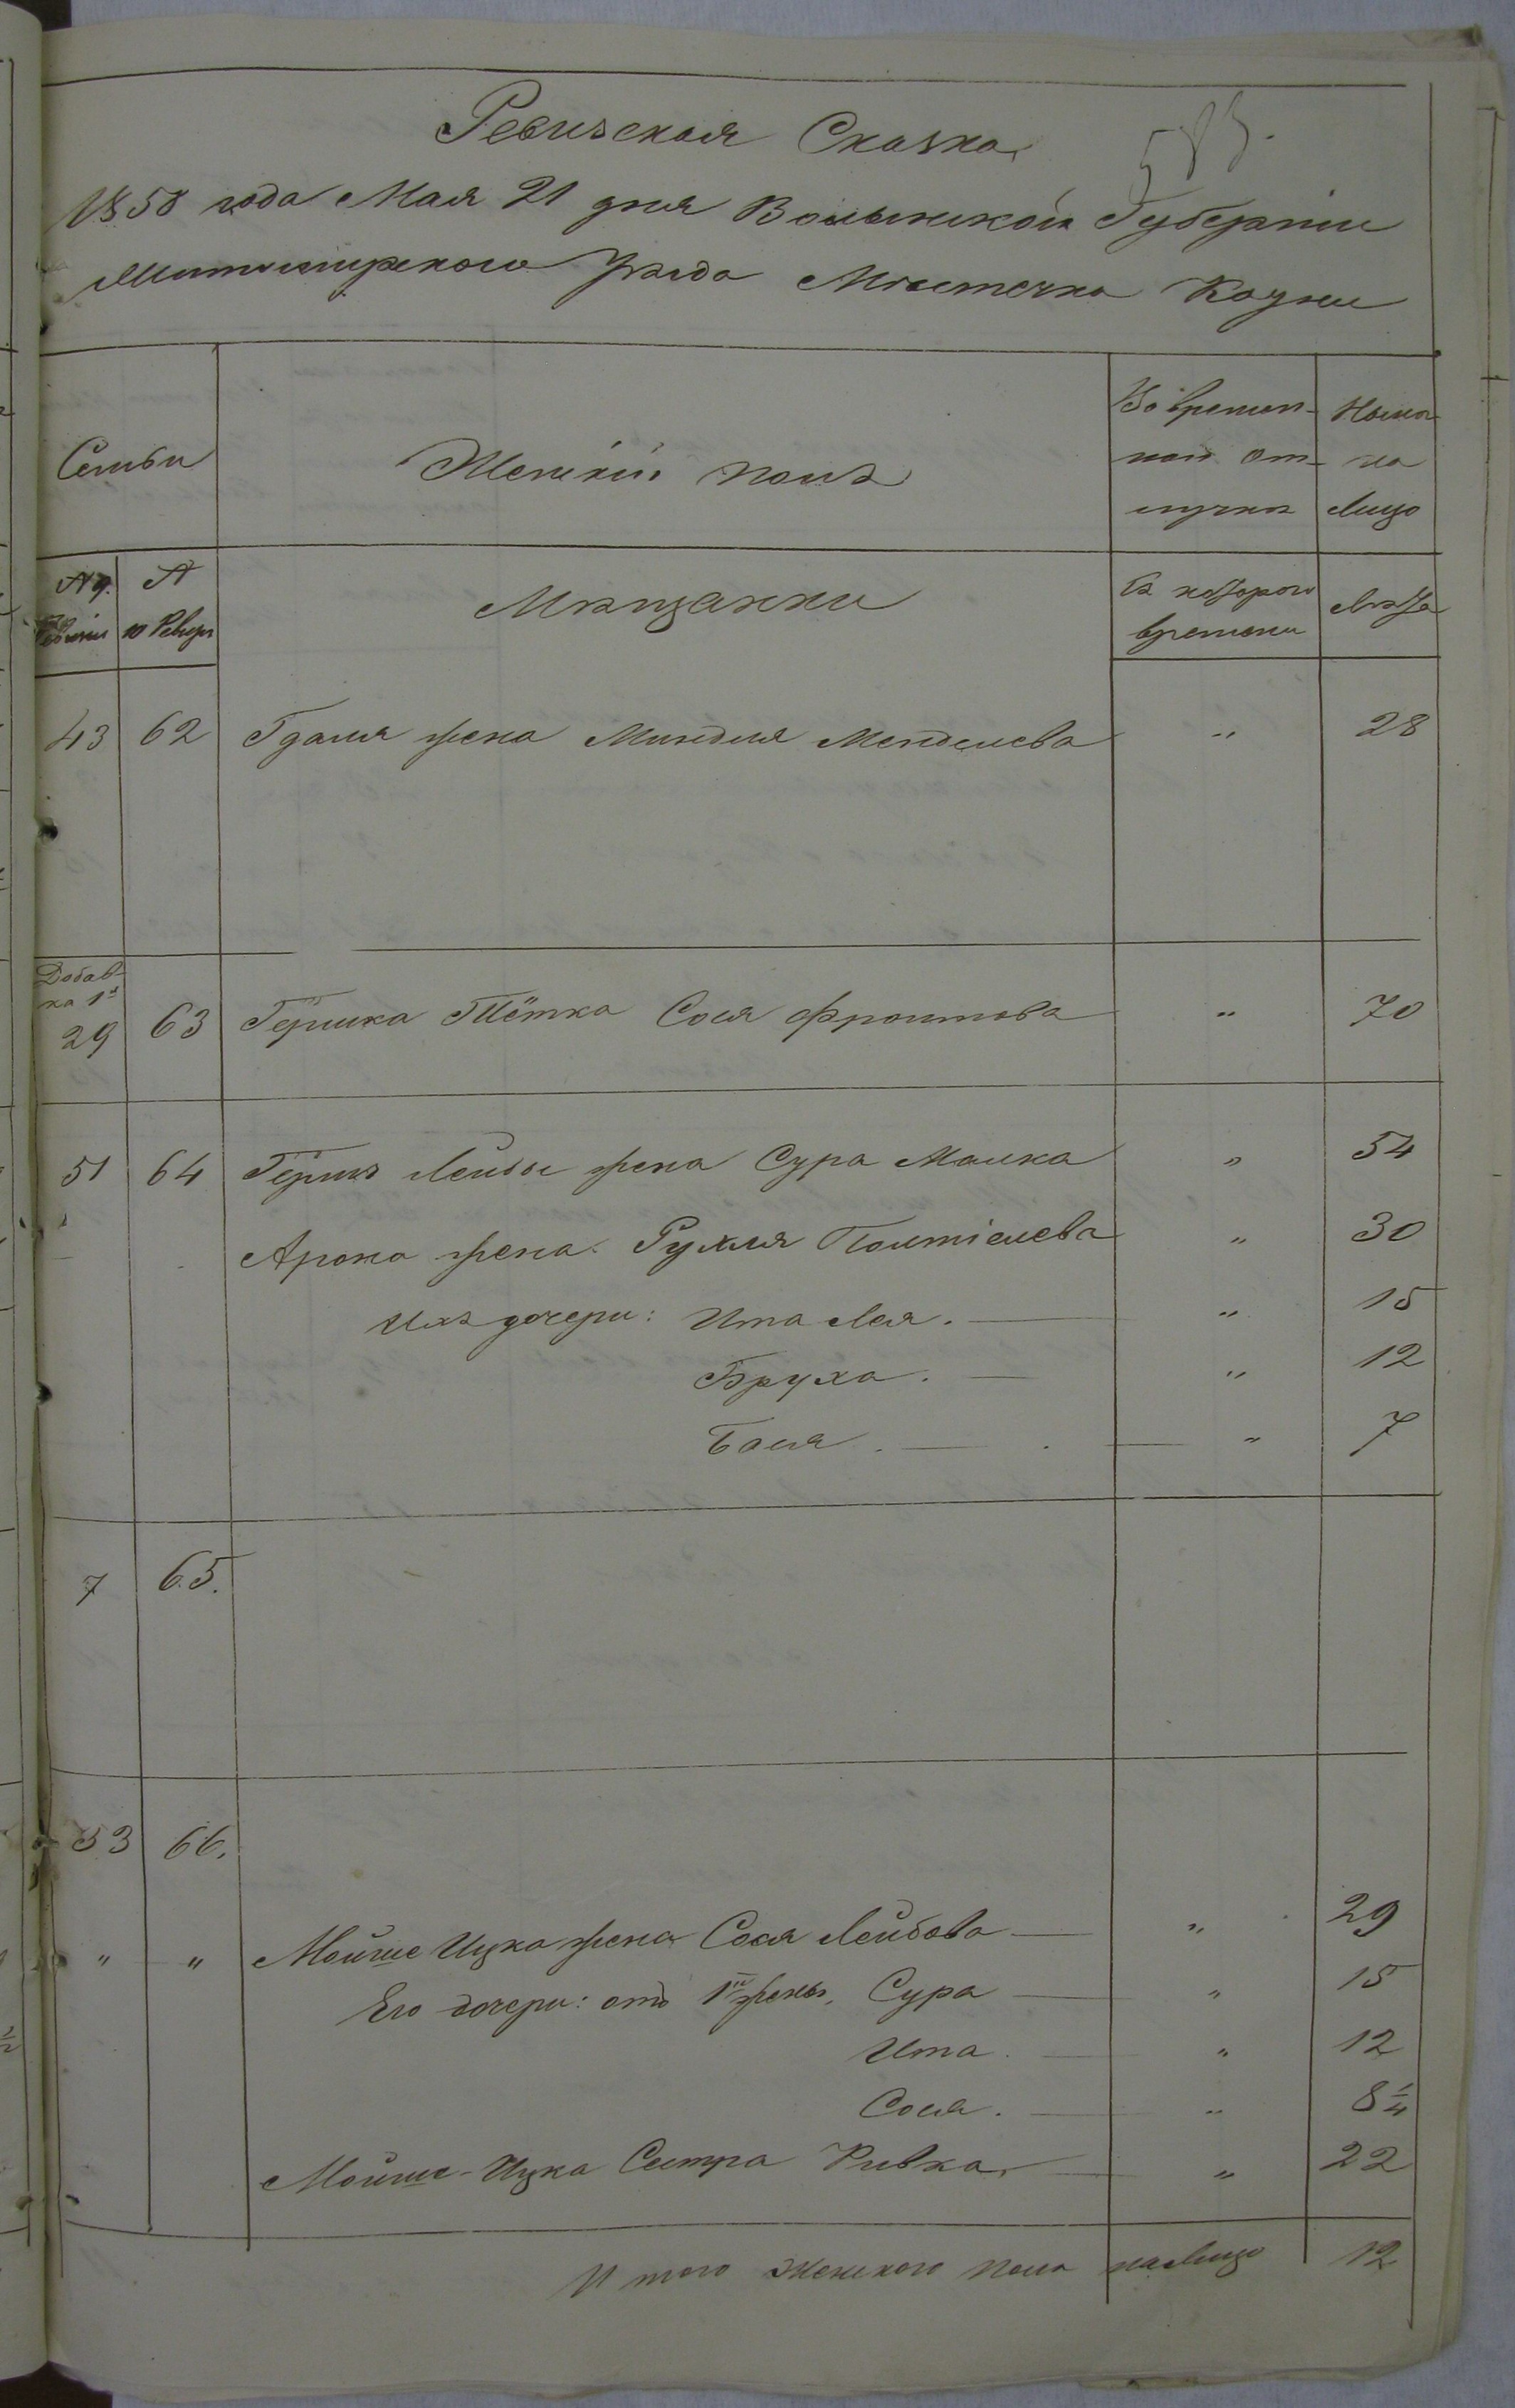 583.
Ревизская Сказка
1858 года Мая 21 дня Волынской Губерніи
Житомирскаго Уѣзда Мѣстечка Кодни
Семьи
Женскій полъ
Во времен-
ной от-
лучкѣ
Нына
на
Лицо
№ 9.
Ревизіи
№
10 Ревизіи
Мѣщанки
Съ котораго
времени
Лѣта
43 62 Гдаля жена Миндля Менделева „ 28
Добав-
ка 1я
29 63 Гершка Тётка Сося „ 70
51 64 Герш Лейбы жена Сура Малка „ 54
Арона жена Рухля Палтіелева „ 30
Ихъ дочери: Ита Лея. „ 15
Бруха. „ 12
Бася. „ 7
7 65.
53 66.
„ „ Мойше Ицка жена Сося Лейбова „ 29
Его дочери: отъ 1й жены, Сура „ 15
Ита. „ 12
Сося. „ 8¼
Мойше-Ицка Сестра Ривка „ 22
Итого Женскаго пола на Лицо 12